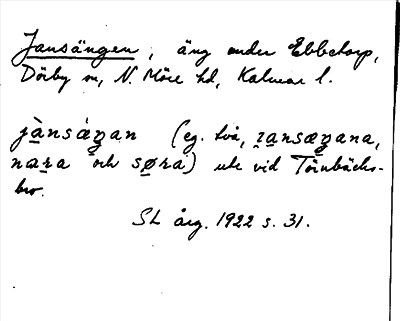 Jansängen, äng under Ebbetorp,
Dörby sn, N. Möre hd, Kalmar l.
jànsáŋan (eg. två, jansæŋana,
næra och søra) ute vid Törnbäcks-
bro.
SL årg. 1922 s. 31.